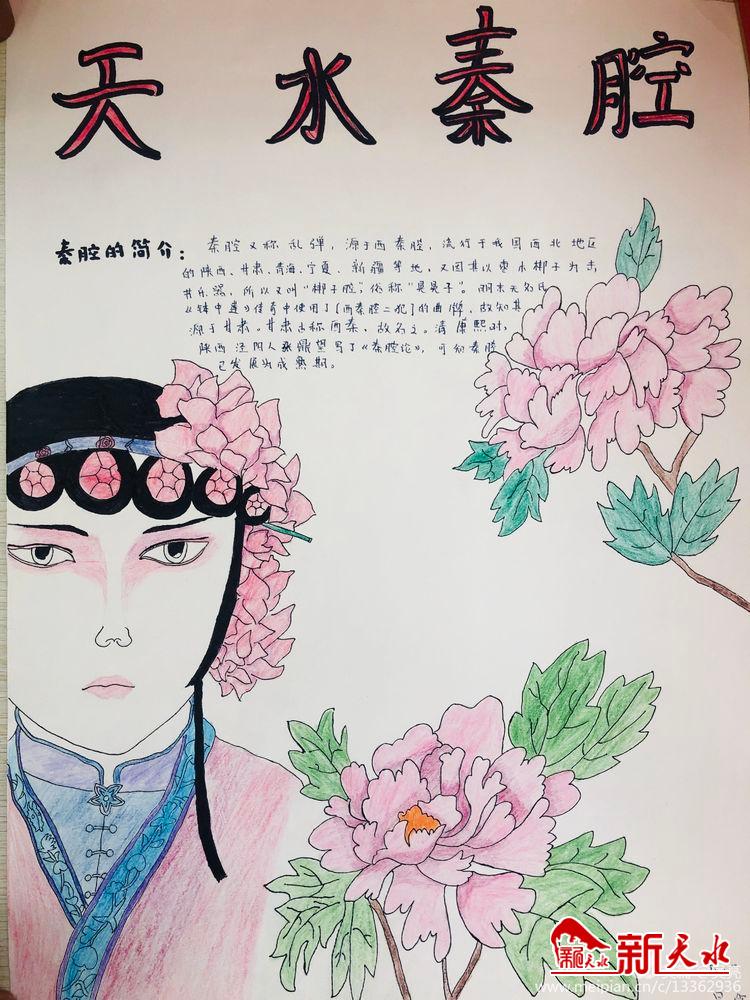 天水秦腔
秦腔的简介：
秦腔又称乱弹，源于西秦腔，流行于我国西北地区
的陕西、甘肃、青海、宁夏、新疆等地，又因其以枣木梆子为击
节乐器，所以又叫“梆子腔”，俗称“桄桄子”。明末无名氏
《钵中莲》传奇中使用了[西秦腔二犯]的曲牌，故知其
源于甘肃。甘肃古称西秦，故名之。清康熙时，
陕西泾阳人张鼎望写了《秦腔论》，可知秦腔
已发展为成熟期。
新天水
www.meipian.cn/c/13362936